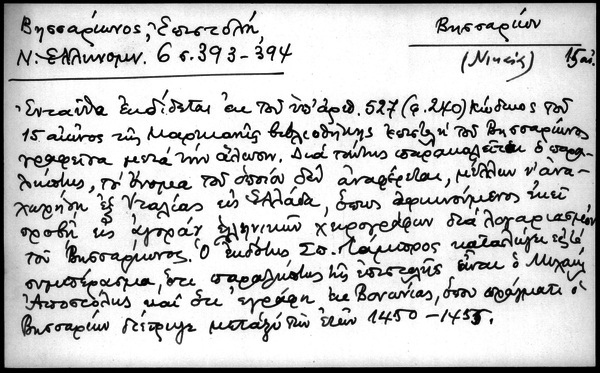 Βησσαρίωνος, Ἐπιστολή,
Ν. Ἑλληνομν. 6 σ. 393-394
Βησσαρίων
(Νικαίας) 15 αἰ.
Ἐνταῦθα ἐκδίδεται ἐκ τοῦ ὑπ' ἀριθ. 527 (φ. 240) κώδικος τοῦ
15 αἰῶνος τῆς Μαρκιανῆς βιβλιοθήκης ἐπιστολὴ τοῦ Βησσαρίωνος
γραφεῖσα μετὰ τὴν ἅλωσιν. Διὰ ταύτης παρακαλεῖται ὁ παρα-
λήπτης, τὸ ὄνομα τοῦ ὁποίου δὲν ἀναφέρεται, μέλλων ν' ἀνα-
χωρήσῃ ἐξ Ἰταλίας εἰς Ἑλλάδα, ὅπως ἀφικνούμενος ἐκεῖ
προβῇ εἰς ἀγορὰν ἑλληνικῶν χειρογράφων διὰ λογαριασμὸν
τοῦ Βησσαρίωνος. Ὁ ἐκδότης Σπ. Λάμπρος καταλήγει εἰς τὸ
συμπέρασμα, ὅτι παραλήπτης τῆς ἐπιστολῆς εἶναι ὁ Μιχαὴλ
Ἀποστόλης καὶ ὅτι ἐγράφη ἐκ Βονωνίας, ὅπου πράγματι ὁ
Βησσαρίων διέτριψε μεταξὺ τῶν ἐτῶν 1450-1455.